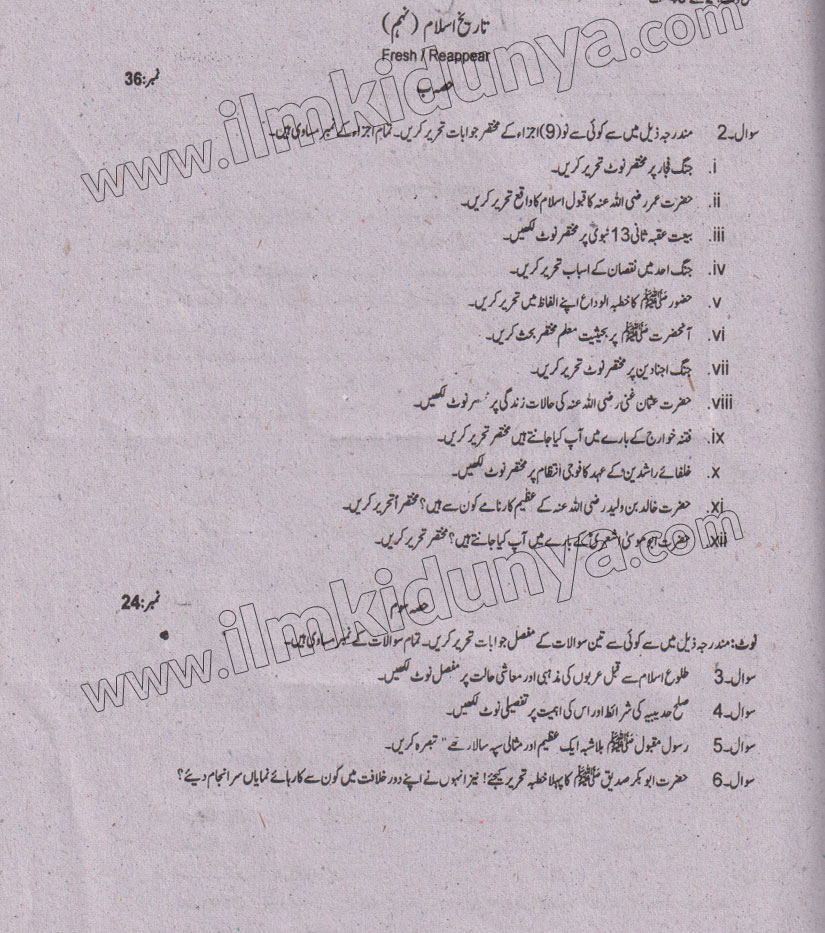 تاریخ اسلام (نہم)
Fresh / Reappear
حصہ ب
نمبر:36
سوال۔2 مندرجہ ذیل میں سے کوئی سے نو(9) اجزاء کے مختصر جوابات تحریر کریں۔ تمام اجزاء کے نمبر مساوی ہیں۔
i. جنگ فجار پر مختصر نوٹ تحریر کریں۔
ii. حضرت عمر رضی اللہ عنہ کا قبول اسلام کا واقع تحریر کریں۔
iii. بیعت عقبہ ثانی 13 نبوی پر مختصر نوٹ لکھیں۔
iv. جنگ احد میں نقصان کے اسباب تحریر کریں۔
v. حضور ﷺ کا خطبہ الوداع اپنے الفاظ میں تحریر کریں۔
vi. آنحضرت ﷺ پر بحیثیت معلم مختصر بحث کریں۔
vii. جنگ اجنادین پر مختصر نوٹ تحریر کریں۔
viii. حضرت عثمان غنی رضی اللہ عنہ کی حالات زندگی پر نوٹ لکھیں۔
ix. فتنہ خوارج کے بارے میں آپ کیا جانتے ہیں مختصر تحریر کریں۔
x. خلفائے راشدینؓ کے عہد کا فوجی انتظام پر مختصر نوٹ لکھیں۔
xi. حضرت خالد بن ولید رضی اللہ عنہ کے عظیم کارنامے کون سے ہیں؟ مختصراً تحریر کریں۔
xii. حضرت ابو موسیٰ اشعریؓ کے بارے میں آپ کیا جانتے ہیں؟ مختصر تحریر کریں۔
حصہ سوم
نمبر:24
نوٹ: مندرجہ ذیل میں سے کوئی سے تین سوالات کے مفصل جوابات تحریر کریں۔ تمام سوالات کے نمبر مساوی ہیں۔
سوال۔3 طلوع اسلام سے قبل عربوں کی مذہبی اور معاشی حالت پر مفصل نوٹ لکھیں۔
سوال۔4 صلح حدیبیہ کی شرائط اور اس کی اہمیت پر تفصیلی نوٹ لکھیں۔
سوال۔5 رسول مقبول ﷺ بلاشبہ ایک عظیم اور مثالی سپہ سالار تھے" تبصرہ کریں۔
سوال۔6 حضرت ابوبکر صدیق ﷺ کا پہلا خطبہ تحریر کیجئے! نیز انہوں نے اپنے دور خلافت میں کون سے کارہائے نمایاں سرانجام دیئے؟
www.ilmkidunya.com
www.ilmkidunya.com